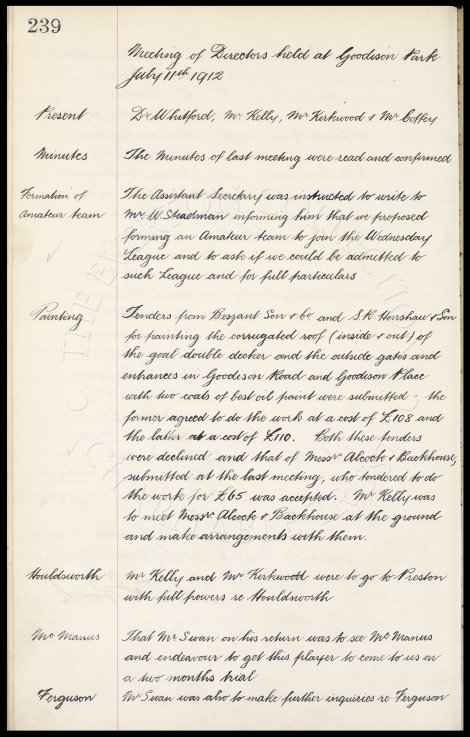 239
Meeting of Directors held at Goodison Park
July 11th 1912
Present Dr Whitford, Mr Kelly, Mr Kirkwood & Mr Coffey
Minutes The Minutes of last meeting were read and confirmed
Formation of Amateur team The Assistant Secretary was instructed to write to
Mr W. Steadman informing him that we proposed
forming an Amateur team to join the Wednesday
League and to ask if we could be admitted to
such League and for full particulars
Painting Tenders from Bezzant Son & Co. and S.R. Henshaw & Son
for painting the corrugated roof (inside & out) of
the goal double decker and the outside gates and
entrances in Goodison Road and Goodison Place
with two coats of best oil paint were submitted; the
former agreed to do the work at a cost of £108 and
the latter at a cost of £110. Both these tenders
were declined and that of Messrs Alcock & Backhouse,
submitted at the last meeting, who tendered to do
the work for £65 was accepted. Mr Kelly was
to meet Messrs Alcock & Backhouse at the ground
and make arrangements with them.
Houldsworth Mr Kelly and Mr Kirkwood were to go to Preston
with full powers re Houldsworth
Mc Manus That Mr Swan on his return was to see Mc Manus
and endeavour to get this player to come to us on
a two months trial
Ferguson Mr Swan was also to make further inquiries re Ferguson